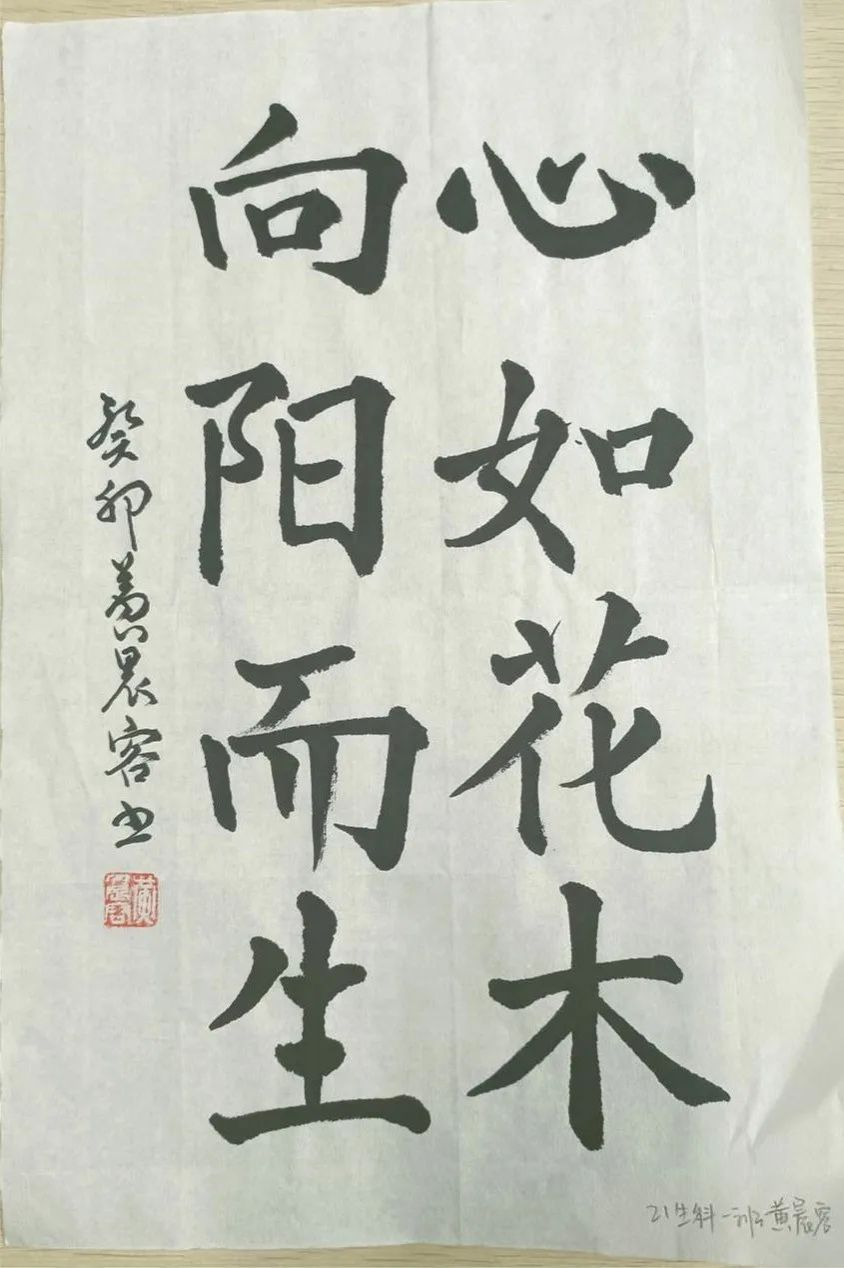 心如花木
向阳而生
癸卯黄晨容书
21生科一班黄晨容